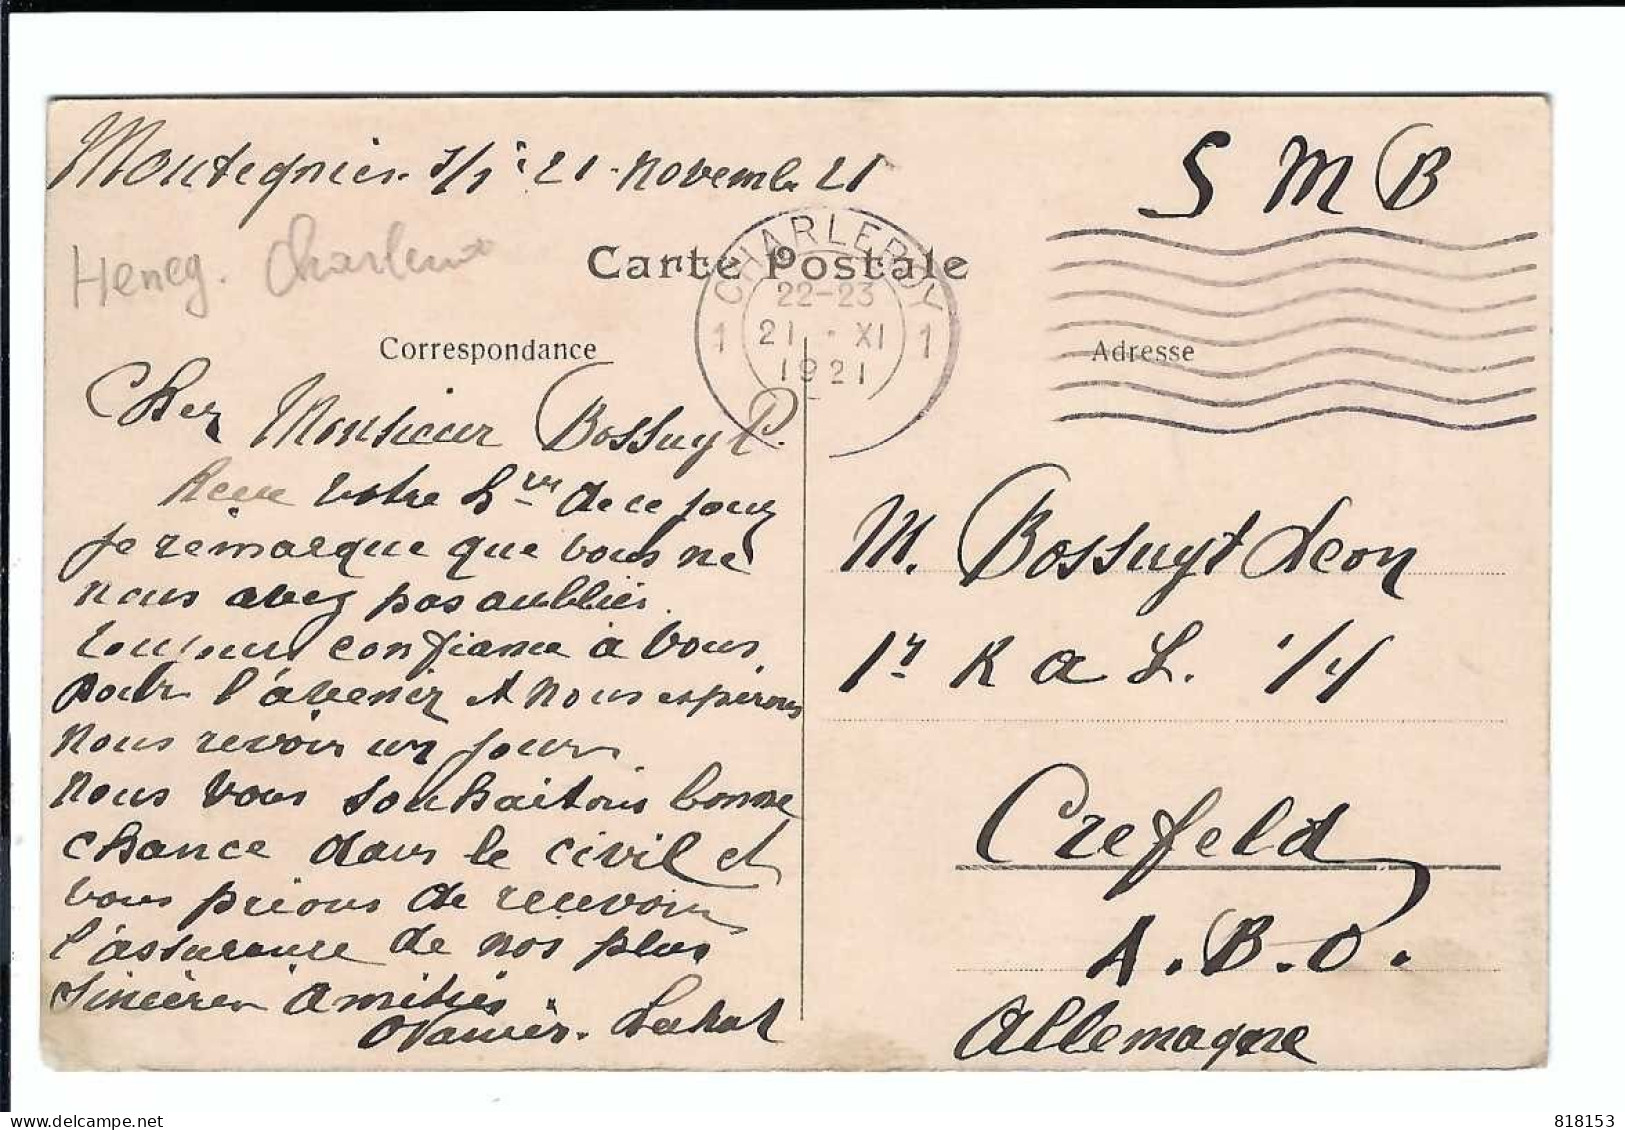 Montegnies. s/s 21 novemb. 21
S M B
Heneg. Charleroi
Carte Postale
CHARLEROY
22-23
1 21 · XI 1
1921
Correspondance
Adresse
Cher Monsieur Bossuyt.
Recu votre de ce jour
je remarque que vous ne
nous avez pas oubliés.
toujours confiance à vous
pour l'avenir et nous espérons
nous revoir un jour
nous vous souhaitons bonne
chance dans le civil et
vous prions de recevoir
l'assurance de nos plus
sincères amitiés.
M. Bossuyt Leon
1r R a L. 1/4
Crefeld
A.B.O.
Allemagne
delcampe.net
Heneg
818153